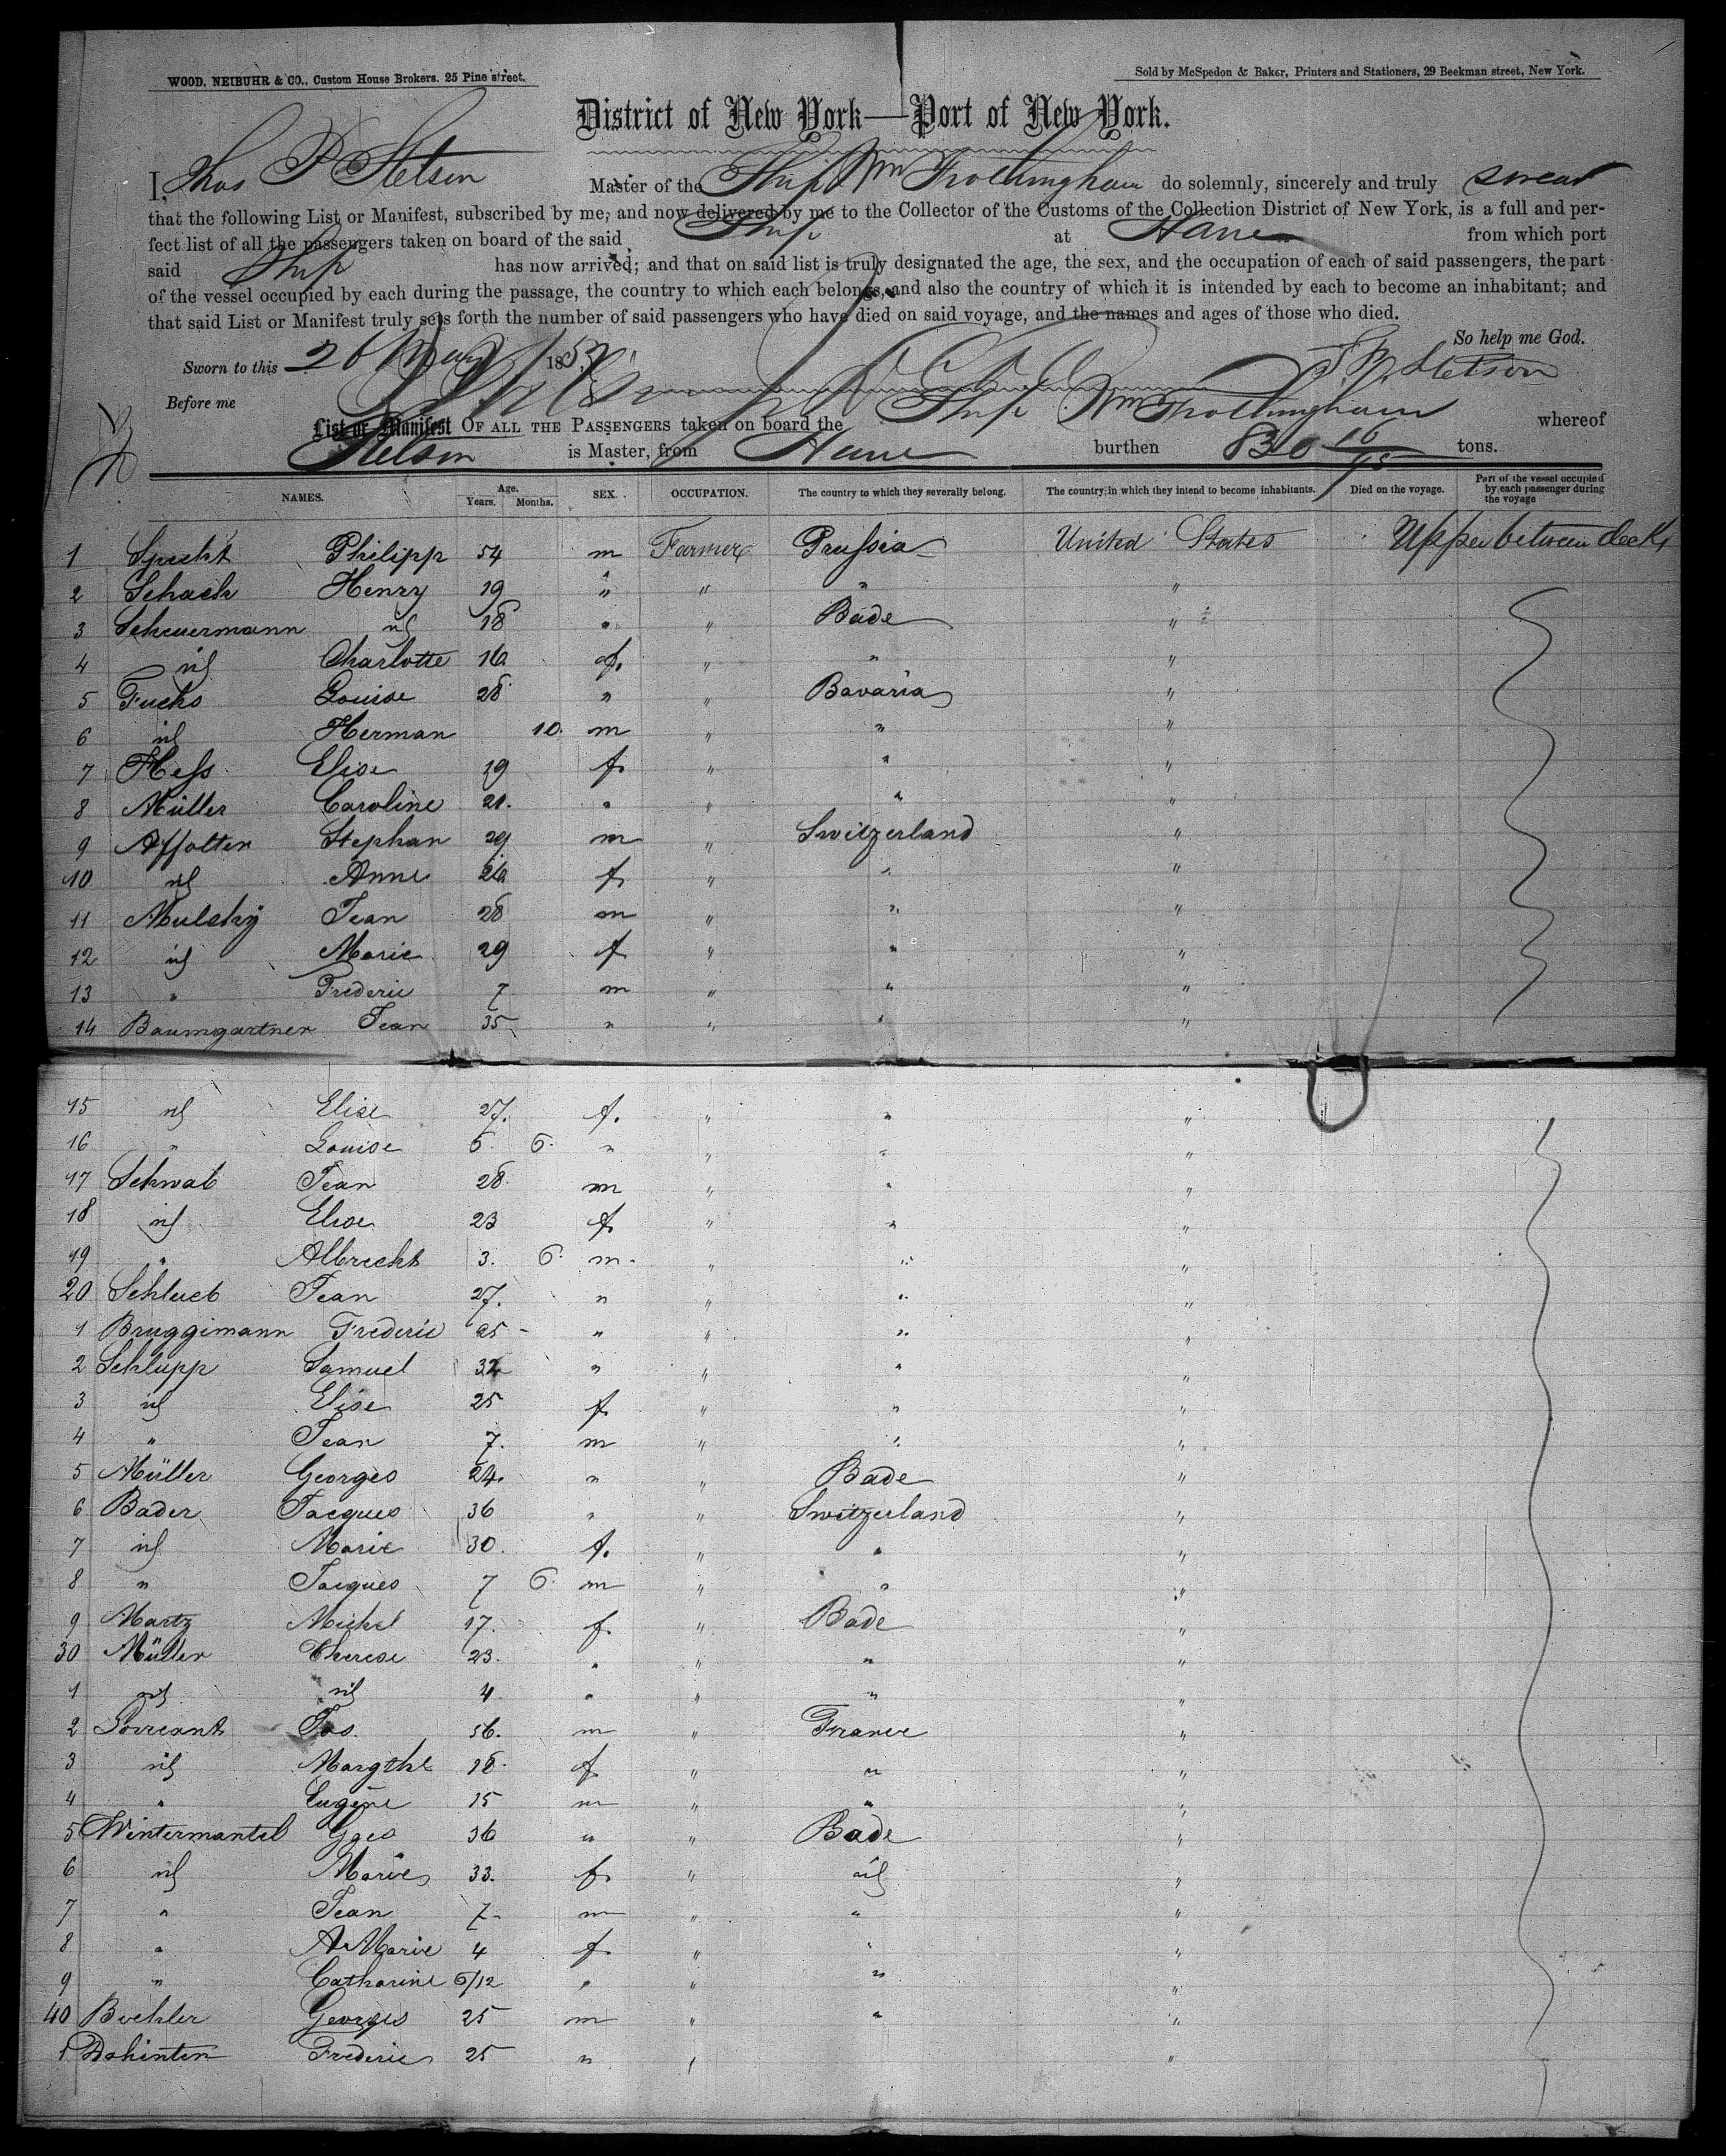 WOOD, NEIBUHR & CO., Custom House Brokers. 25 Pine street.
Sold by McSpedon & Baker, Printers and Stationers, 29 Beekman street, New York.
District of New York—Port of New York.
I, Thos P Stetson Master of the Ship Wm Frothingham do solemnly, sincerely and truly swear
that the following List or Manifest, subscribed by me, and now delivered by me to the Collector of the Customs of the Collection District of New York, is a full and per-
fect list of all the passengers taken on board of the said Ship at Havre from which port
said Ship has now arrived; and that on said list is truly designated the age, the sex, and the occupation of each of said passengers, the part
of the vessel occupied by each during the passage, the country to which each belongs, and also the country of which it is intended by each to become an inhabitant; and
that said List or Manifest truly sets forth the number of said passengers who have died on said voyage, and the names and ages of those who died.
So help me God.
Sworn to this 26 May 185 T. P. Stetson
Before me
List or Manifest OF ALL THE PASSENGERS taken on board the Ship Wm Frothingham whereof
Stetson is Master, from Havre burthen 830 16/95 tons.
NAMES. Age. Years. Months. SEX. OCCUPATION. The country to which they severally belong. The country in which they intend to become inhabitants. Died on the voyage. Part of the vessel occupied by each passenger during the voyage
1 Specht Philipp 54 m Farmer Prussia United States Upper between decks
2 Schack Henry 19 " " " "
3 Scheuermann id 18 " " Bade "
4 id Charlotte 16 f. " " "
5 Fuchs Louise 28 " " Bavaria "
6 id Herman 10. m " " "
7 Hess Elise 19 f. " " "
8 Müller Caroline 21. " " " "
9 Affolter Stephan 29 m " Switzerland "
10 id Anne 26 f. " " "
11 Jean 28 m " " "
12 id Marie 29 f " " "
13 " Frederic 7 m " " "
14 Baumgartner Jean 35 " " " "
15 id Elise 27. f. " " "
16 " Louise 5. 6. " " " "
17 Schwab Jean 28. m " " "
18 id Elise 23 f. " " "
19 " Albrecht 3. 6. m. " " "
20 Schlueb Jean 27. " " " "
1 Bruggimann Frederic " " " "
2 Schlupp Samuel 32 " " " "
3 id Elise 25 f. " " "
4 " Jean 7. m " " "
5 Müller Georges 24. " " Bade "
6 Bader Jacques 36 " " Switzerland "
7 id Marie 30. f. " " "
8 " Jacques 7 6. m " " "
9 Martz Michel 17. f. " Bade "
30 Müller Therese 23. " " " "
1 id id 4 " " " "
2 Jos. 56. m " France "
3 id Margthe 18. f " " "
4 " Eugène 15 m " " "
5 Wintermantel Ggeo 36 " " Bade "
6 id Marie 33. f. " id "
7 " Jean 7. m " " "
8 " A Marie 4 f. " " "
9 " Catharine 6/12 " " " "
40 Buehler Georges 25 m " " "
1 Dahinten Frederic 25 " " "